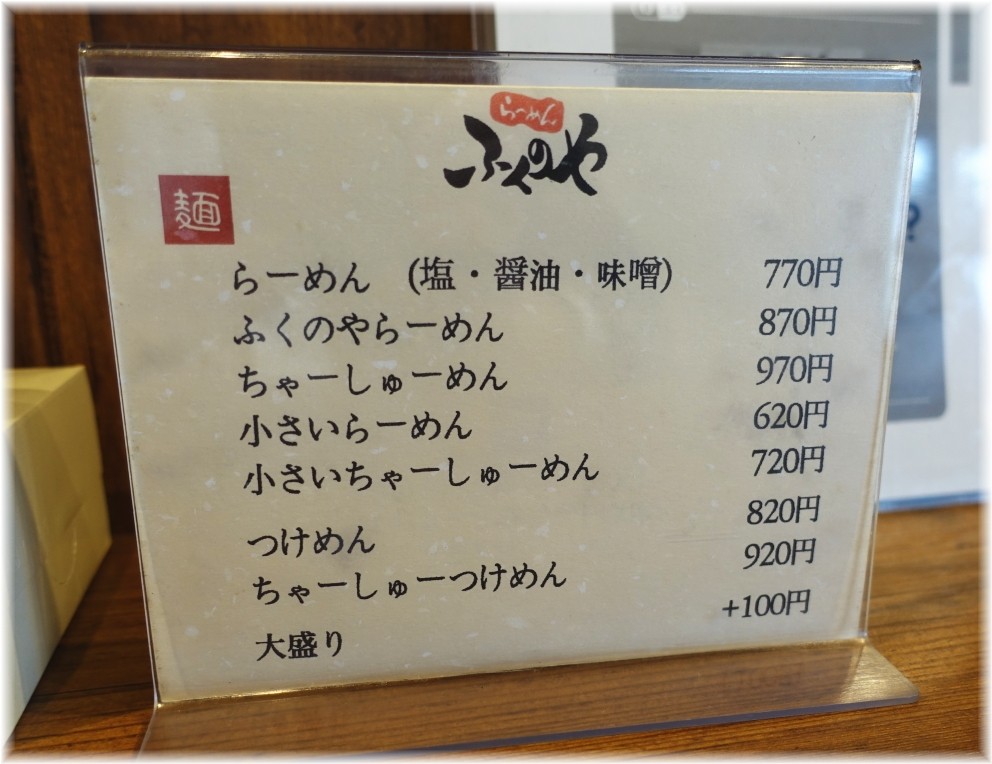 らーめん
ふくのや
麺
らーめん (塩・醤油・味噌) 770円
ふくのやらーめん 870円
ちゃーしゅーめん 970円
小さいらーめん 620円
小さいちゃーしゅーめん 720円
つけめん 820円
ちゃーしゅーつけめん 920円
大盛り +100円